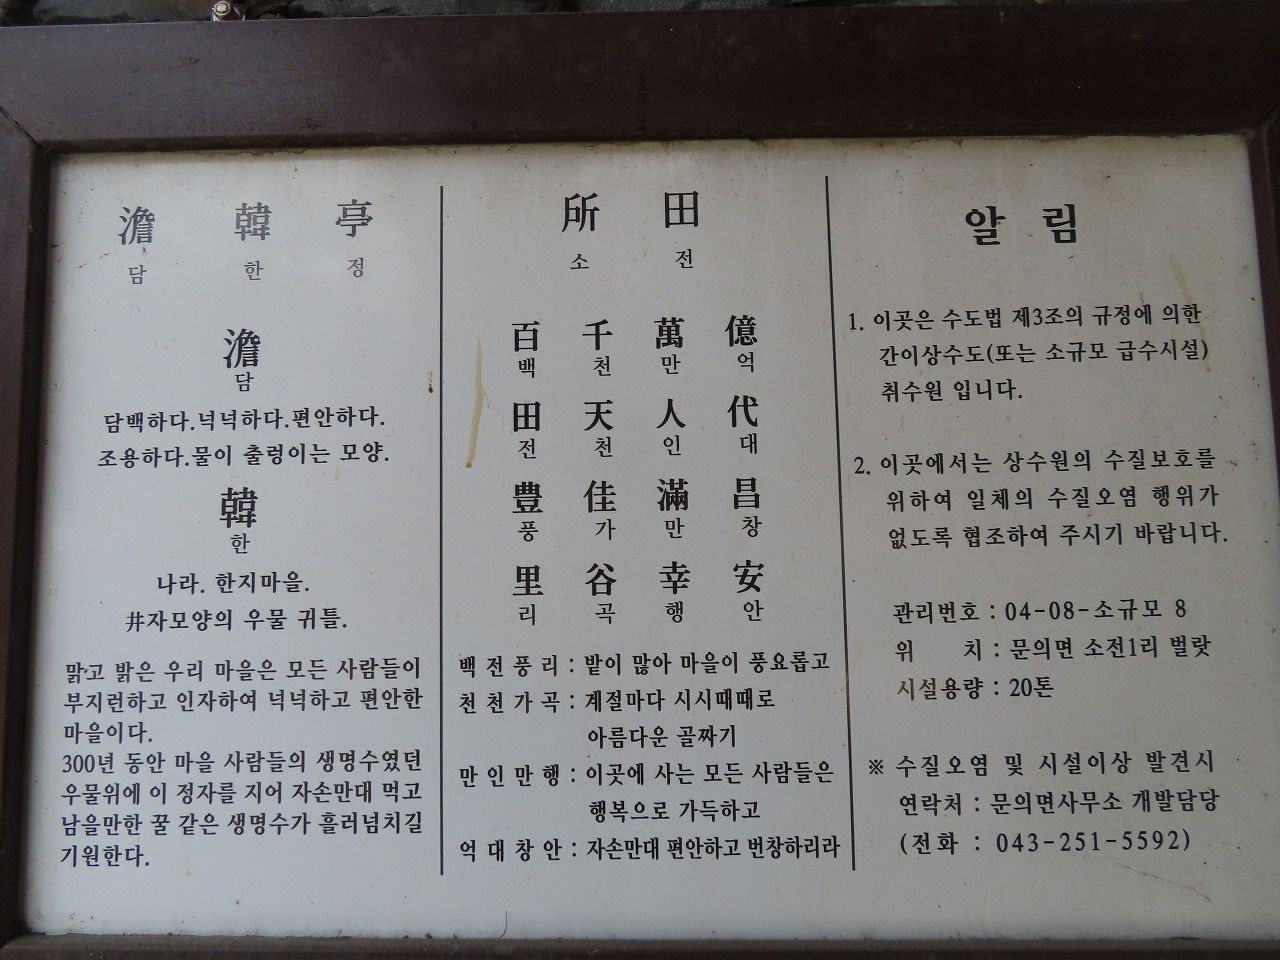 澹 韓 亭
담 한 정
澹
담
담백하다.넉넉하다.편안하다.
조용하다.물이 출렁이는 모양.
韓
한
나라. 한지마을.
井자모양의 우물 귀틀.
맑고 밝은 우리 마을은 모든 사람들이
부지런하고 인자하여 넉넉하고 편안한
마을이다.
300년 동안 마을 사람들의 생명수였던
우물위에 이 정자를 지어 자손만대 먹고
남을만한 꿀 같은 생명수가 흘러넘치길
기원한다.
所 田
소 전
百 千 萬 億
백 천 만 억
田 天 人 代
전 천 인 대
豊 佳 滿 昌
풍 가 만 창
里 谷 幸 安
리 곡 행 안
백 전 풍 리 : 밭이 많아 마을이 풍요롭고
천 천 가 곡 : 계절마다 시시때때로
아름다운 골짜기
만 인 만 행 : 이곳에 사는 모든 사람들은
행복으로 가득하고
억 대 창 안 : 자손만대 편안하고 번창하리라
알 림
1. 이곳은 수도법 제3조의 규정에 의한
간이상수도(또는 소규모 급수시설)
취수원 입니다.
2. 이곳에서는 상수원의 수질보호를
위하여 일체의 수질오염 행위가
없도록 협조하여 주시기 바랍니다.
관리번호 : 04-08-소규모 8
위 치 : 문의면 소전1리 벌랏
시설용량 : 20톤
※ 수질오염 및 시설이상 발견시
연락처 : 문의면사무소 개발담당
(전화 : 043-251-5592)